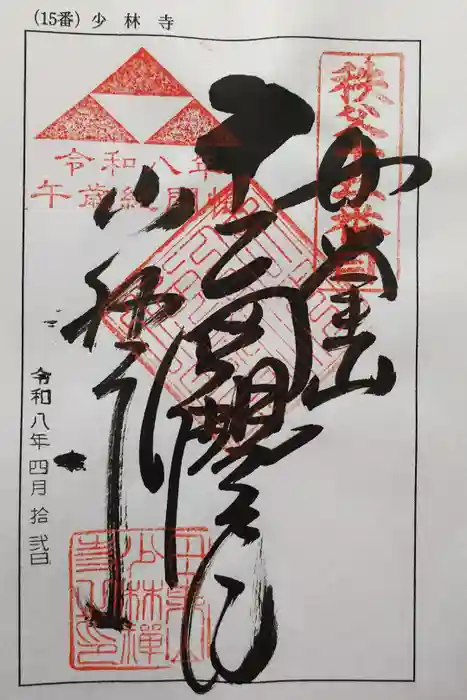 (15番) 少林寺
令和八年
午歳総開帳
母巣山
十一面観世音
少林寺
令和八年四月拾弐日